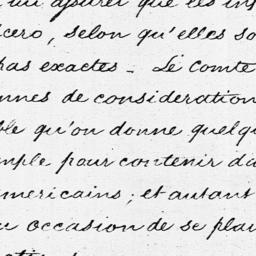 assurer que les in
cero, selon qu'elles so
pas exactes _ Le Comte
nnes de consideration
ble qu'on donne quelqu
mple pour contenir da
mericains; et autant
u occasion de se plai